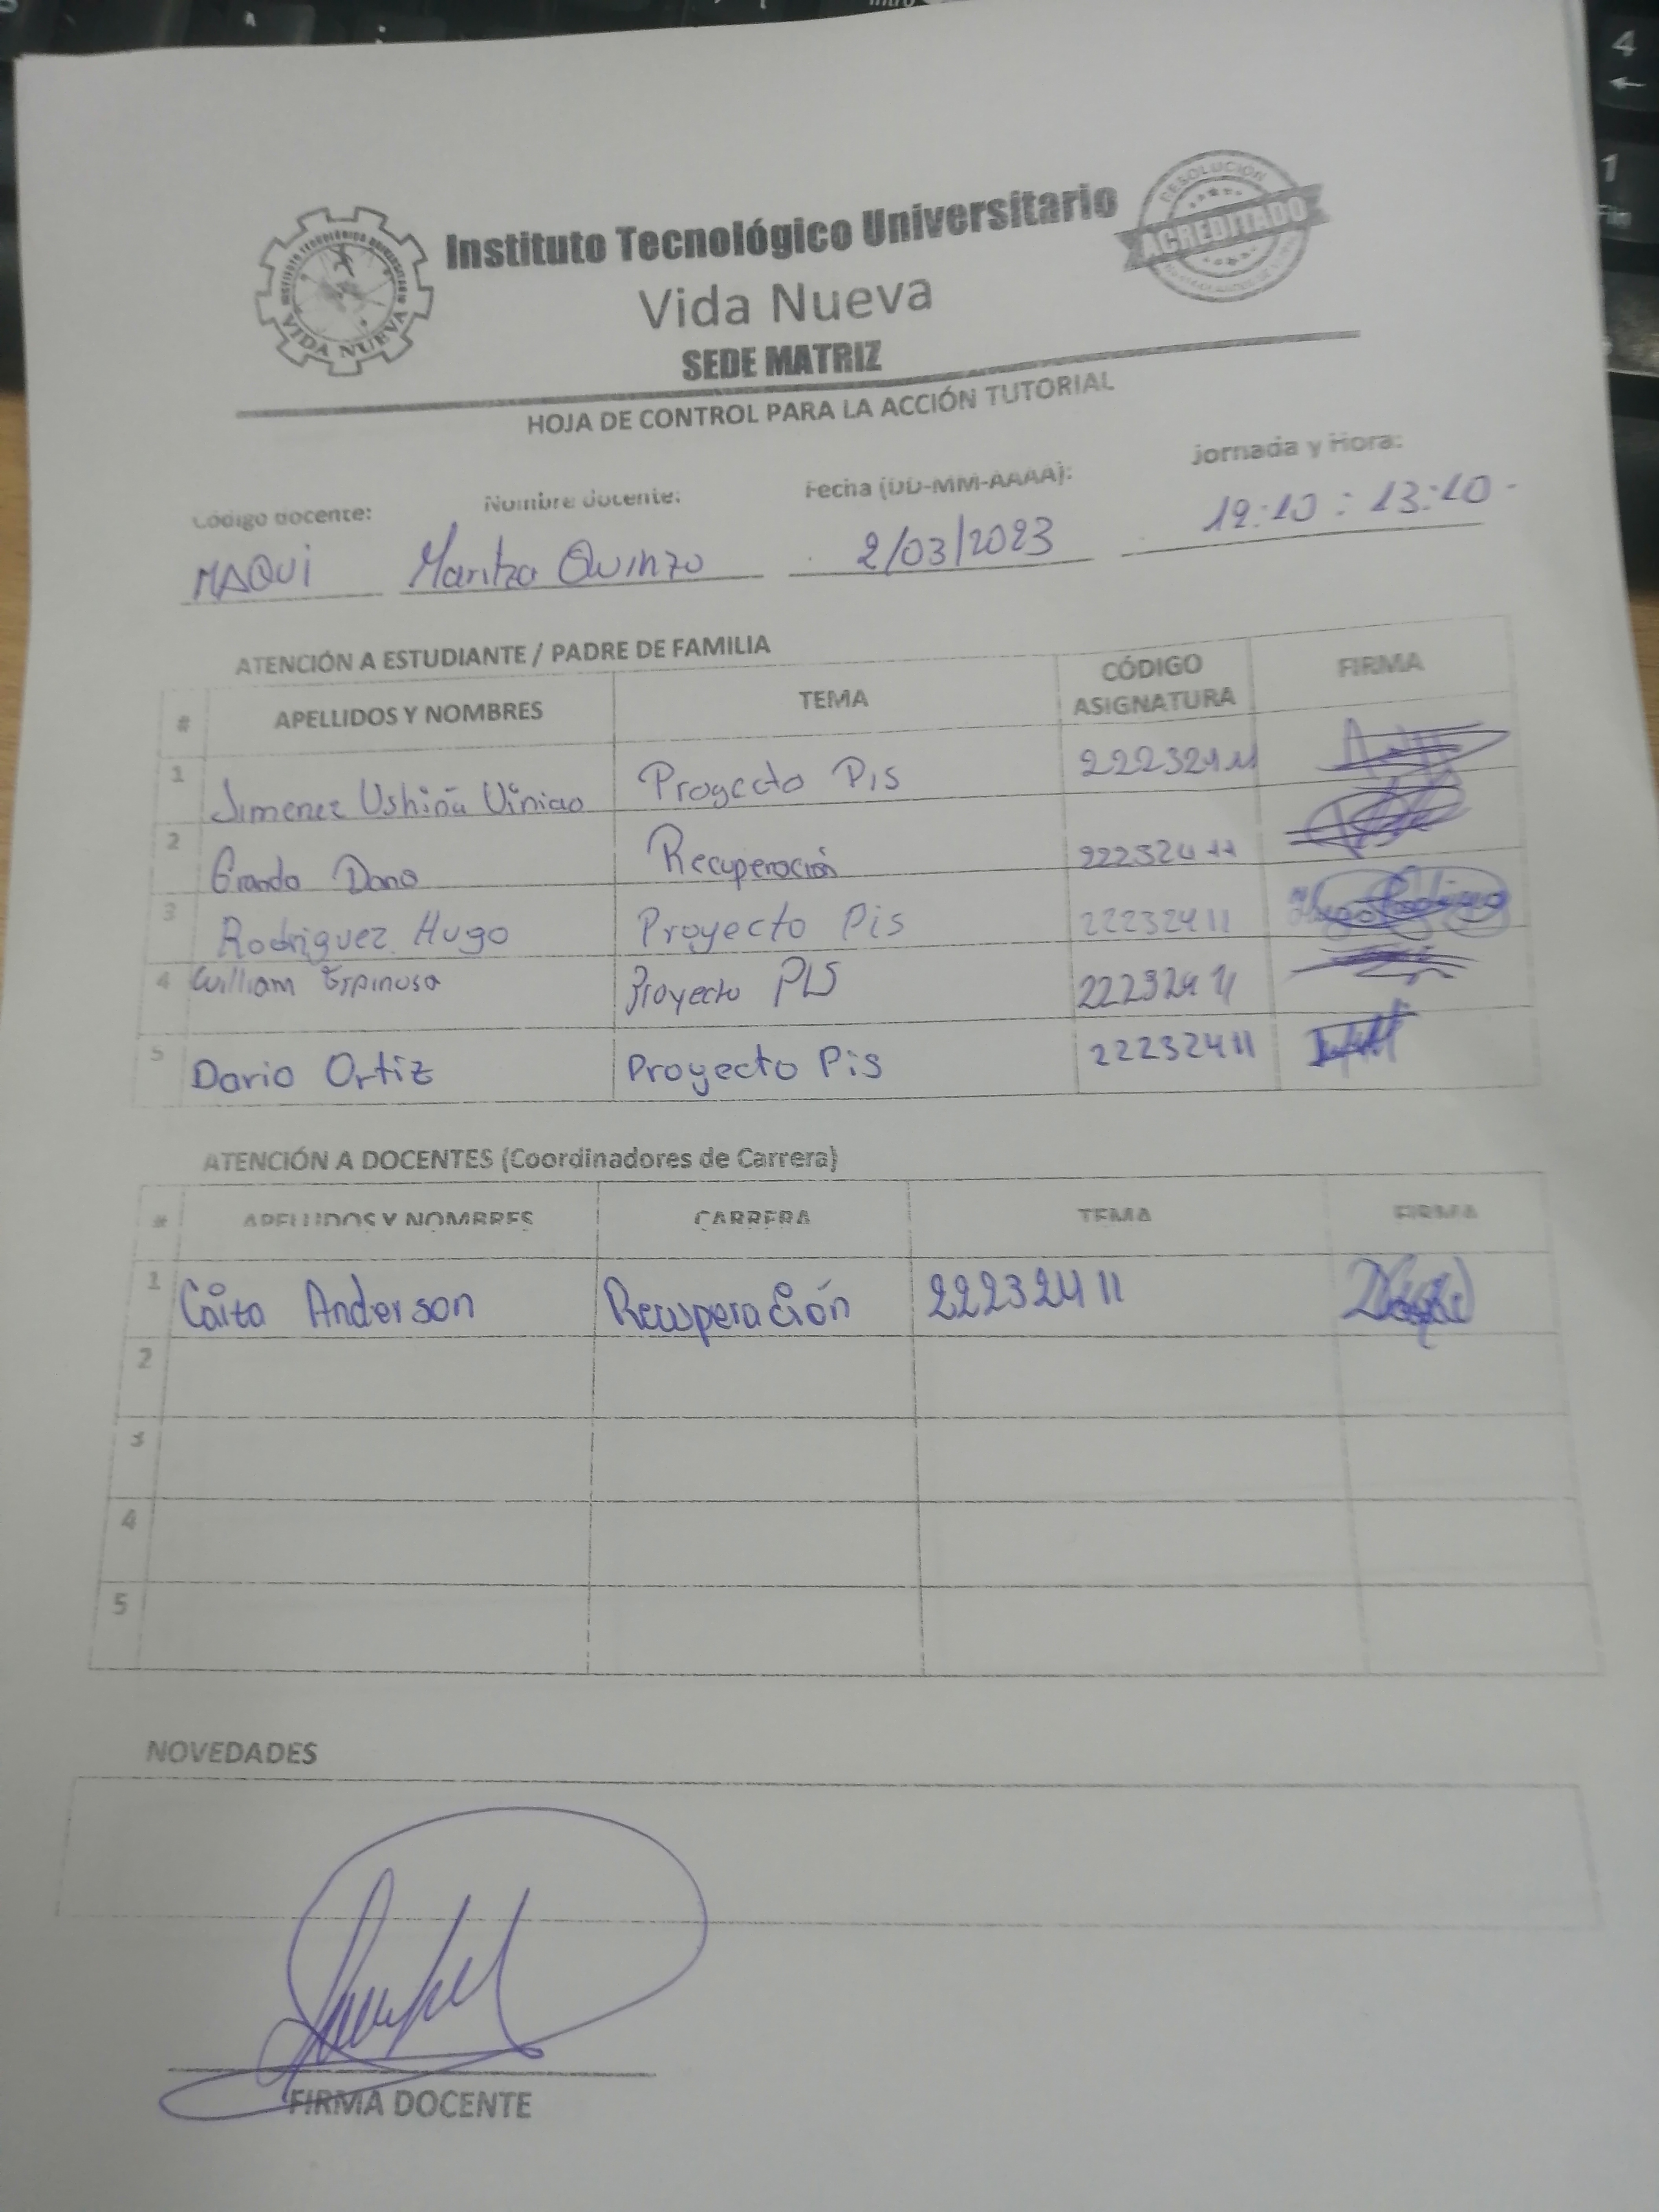 Instituto Tecnológico Universitario
Vida Nueva
SEDE MATRIZ
VIDA NUEVA
RESOLUCIÓN
ACREDITADO
HOJA DE CONTROL PARA LA ACCIÓN TUTORIAL
Código docente: Nombre docente: Fecha (DD-MM-AAAA): Jornada y Hora:
MAQUI Maritza Quinzo 2/03/2023 12:10 : 13:10
ATENCIÓN A ESTUDIANTE / PADRE DE FAMILIA
# APELLIDOS Y NOMBRES TEMA CÓDIGO ASIGNATURA FIRMA
1 Jimenez Ushiña Proyecto Pis 22232411
2 Recuperación 22232411
3 Rodriguez Hugo Proyecto Pis 22232411 Hugo Rodriguez
4 William Espinosa Proyecto PIS 22232411
5 Dario Ortiz Proyecto Pis 22232411
ATENCIÓN A DOCENTES (Coordinadores de Carrera)
# APELLIDOS Y NOMBRES CARRERA TEMA FIRMA
1 Caita Anderson Recuperación 22232411
2
3
4
5
NOVEDADES
FIRMA DOCENTE